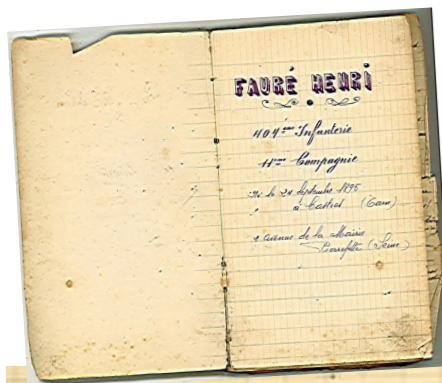 FAURÉ HENRI
404ème Infanterie
11ème Compagnie
Né le 24 Septembre 1895
à Castres (Tarn)
avenue de la Mairie
Pierrefitte (Seine)